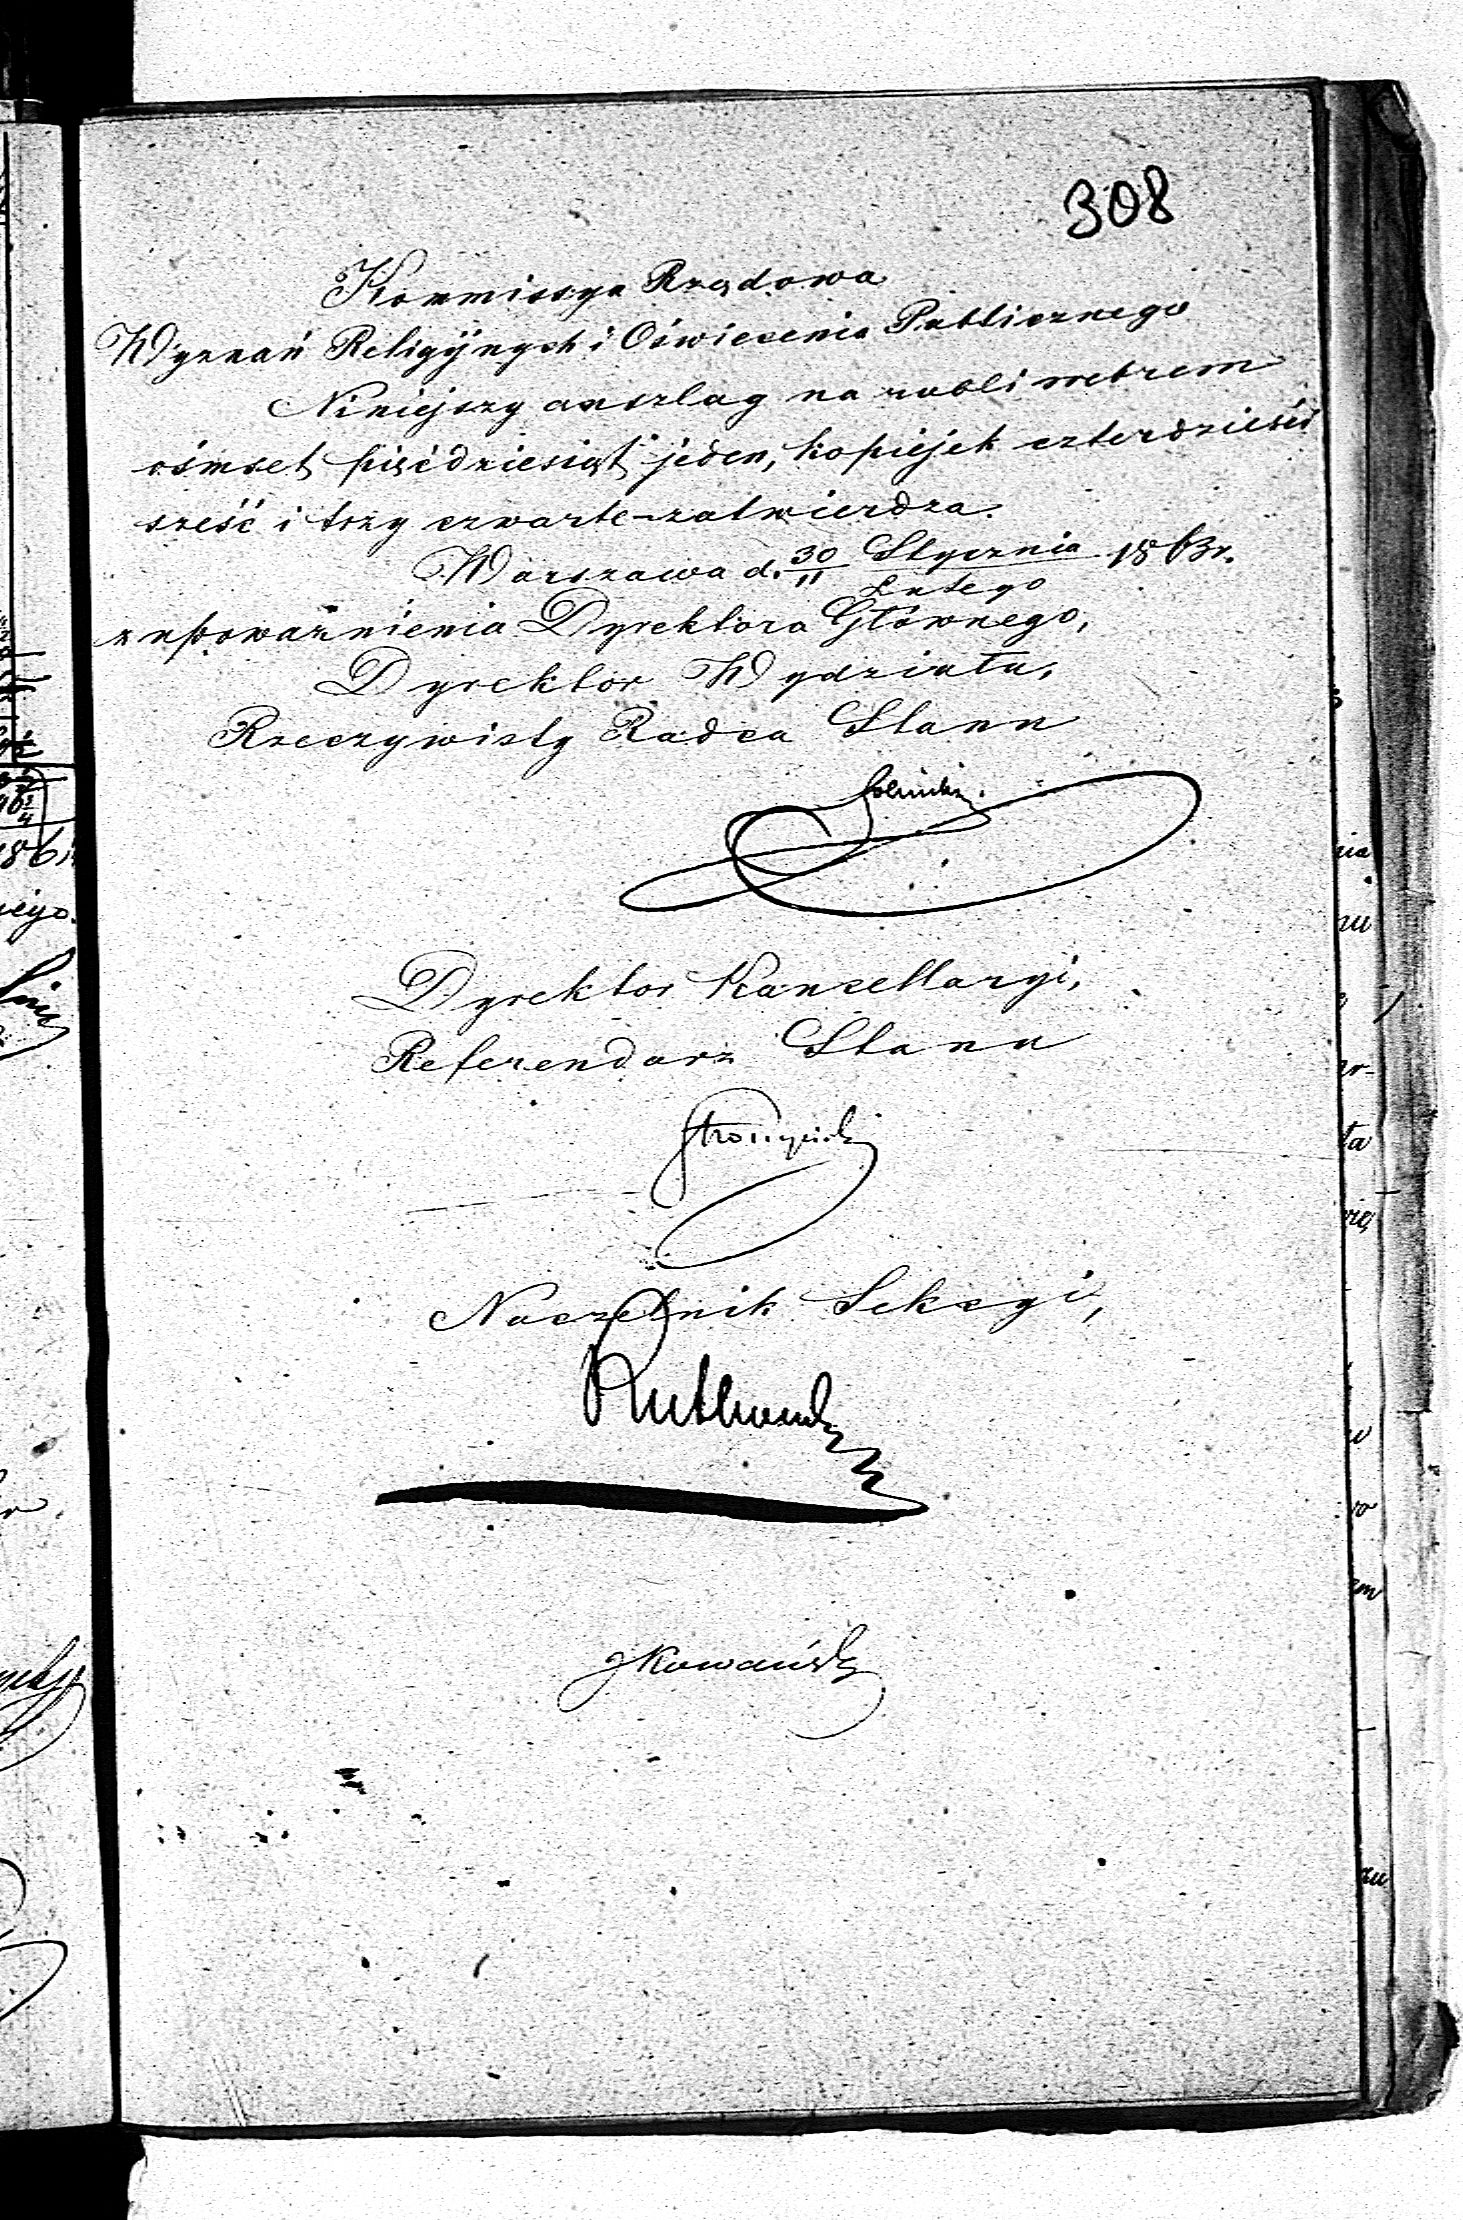 308
Kommissya Rządowa
Wyznań Religijnych i Oświecenia Publicznego
Niniejszy anszlag na rubli srebrem
ośmset pięćdziesiąt jeden, kopiejek czterdzieści
sześć i trzy czwarte zatwierdza.
Warszawa d. 30/11 Stycznia/Lutego 1863 r.
z upoważnienia Dyrektora Głównego,
Dyrektor Wydziału,
Rzeczywisty Radca Stanu
Dyrektor Kancellaryi,
Referendarz Stanu
Stronczyński
Naczelnik Sekcyi,
Rutkowski